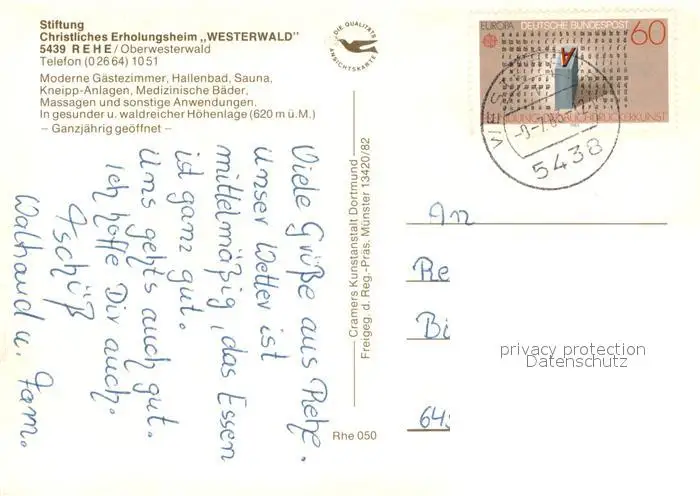 Stiftung
Christliches Erholungsheim „WESTERWALD"
5439 REHE/Oberwesterwald
Telefon (02664) 1051
Moderne Gästezimmer, Hallenbad, Sauna,
Kneipp-Anlagen, Medizinische Bäder,
Massagen und sonstige Anwendungen.
In gesunder u. waldreicher Höhenlage (620 m ü.M.)
– Ganzjährig geöffnet –
DIE QUALITÄTS
ANSICHTSKARTE
EUROPA DEUTSCHE BUNDESPOST 60
A
5438
Viele Grüße aus Rehe.
Unser Wetter ist
mittelmäßig, das Essen
ist ganz gut.
Uns gehts auch gut.
Ich hoffe Dir auch.
Tschüß
Waltraud u. Fam.
Cramers Kunstanstalt Dortmund
Freigeg. d. Reg.-Präs. Münster 13420/82
Rhe 050
An
Re
Bi
645
privacy protection
Datenschutz